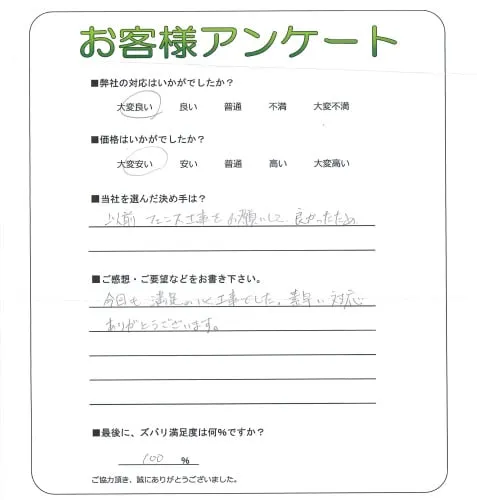 お客様アンケート
■弊社の対応はいかがでしたか？
大変良い 良い 普通 不満 大変不満
■価格はいかがでしたか？
大変安い 安い 普通 高い 大変高い
■当社を選んだ決め手は？
以前 フェンス工事をお願いして 良かったため
■ご感想・ご要望などをお書き下さい。
今回も 満足のいく工事でした。素早い対応
ありがとうございます。
■最後に、ズバリ満足度は何%ですか？
100 %
ご協力頂き、誠にありがとうございました。